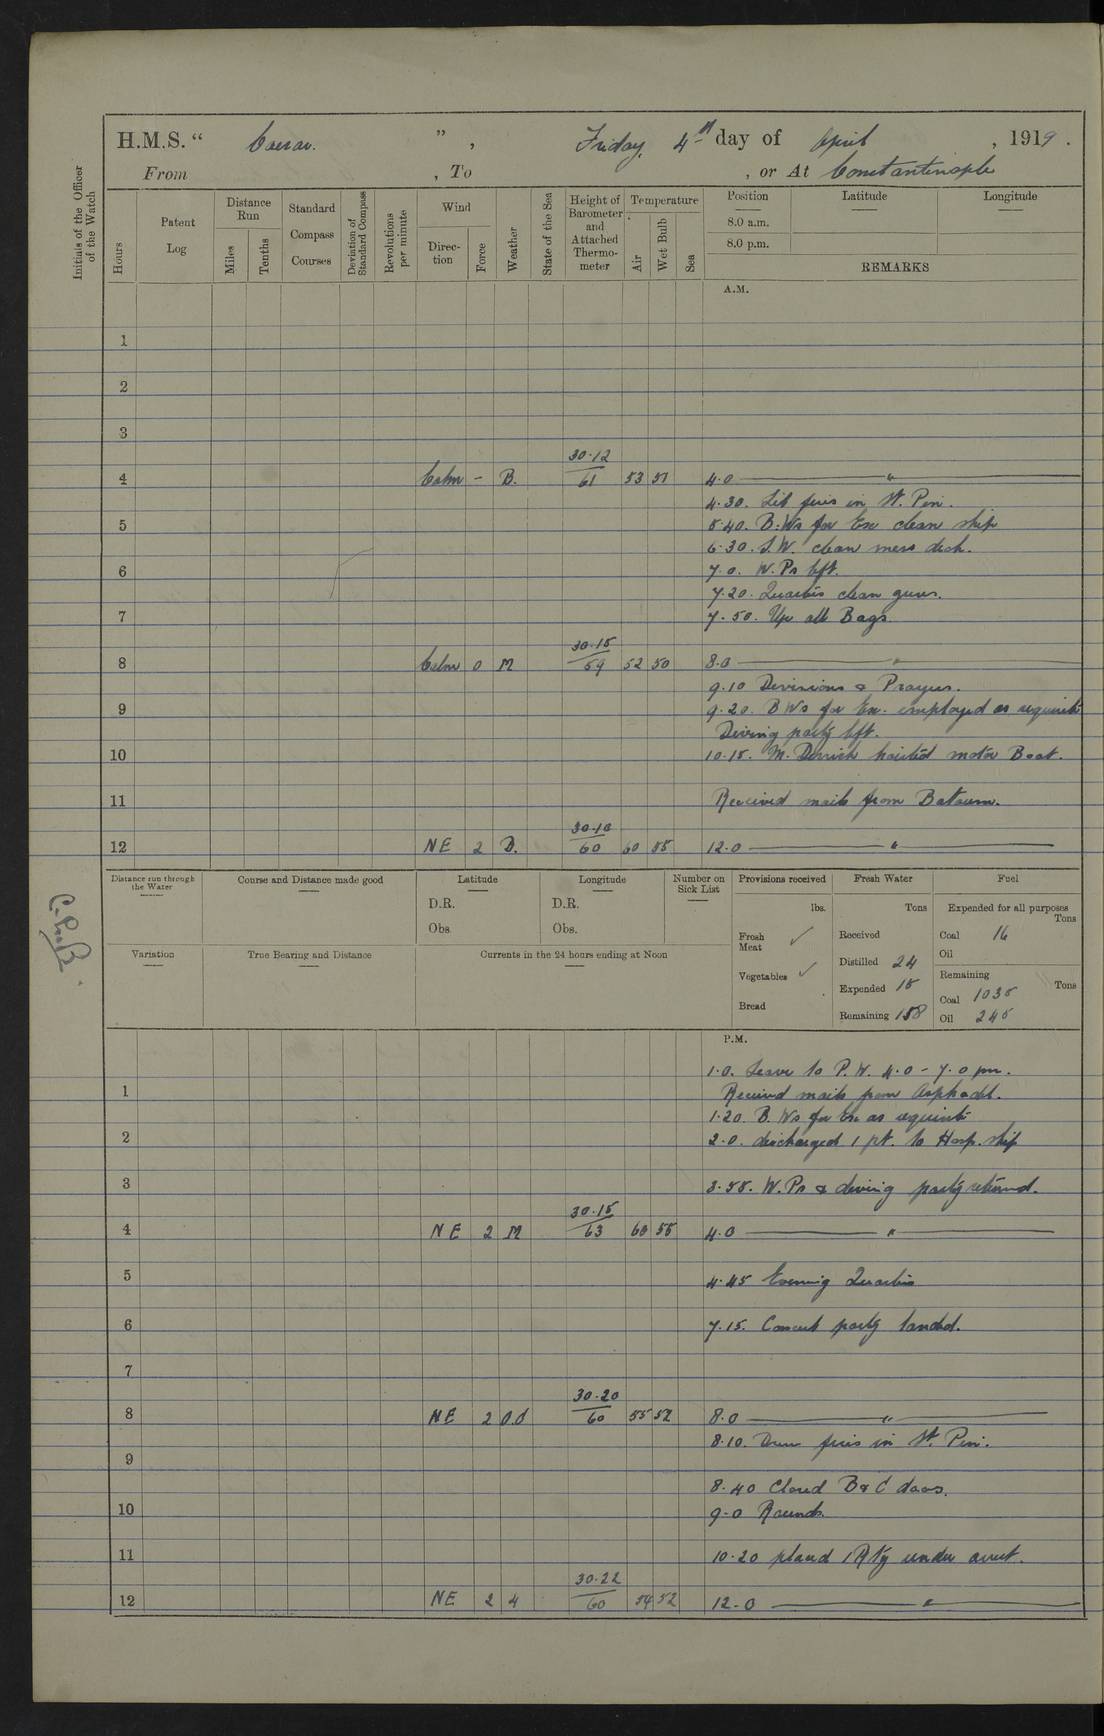 H.M.S. “ Caesar. ” , Friday, 4th day of April , 1919.
From , To , or At Constantinople
Initials of the Officer of the Watch
Hours
Patent Log
Distance Run
Miles
Tenths
Standard Compass Courses
Deviation of Standard Compass
Revolutions per minute
Wind
Direction
Force
Weather
State of the Sea
Height of Barometer and Attached Thermometer
Temperature
Air
Wet Bulb
Sea
Position Latitude Longitude
8.0 a.m.
8.0 p.m.
REMARKS
A.M.
1
2
3
30.12
4 Calm – B. 61 53 51 4.0 "
4.30. Lit fires in St. Pin.
5 5.40. B.Ws for Ex clean ship
6.30. S.W. clean mess deck.
6 7.0. W.Ps left.
7.20. Quarters clean guns.
7 7.50. Up all Bags.
30.15
8 Calm 0 M 59 52 50 8.0 "
9.10 Divisions & Prayers.
9 9.20. B Ws for Ex. employed as requisite
Diving party left.
10 10.15. M. Derrick hoisted motor Boat.
11 Received mails from Batoum.
30.10
12 NE 2 D. 60 60 55 12.0 "
Distance run through the Water
Course and Distance made good
Latitude
D.R.
Obs.
Longitude
D.R.
Obs.
Number on Sick List
Provisions received
lbs.
Fresh Meat ✓
Vegetables ✓
Bread
Fresh Water
Tons
Received
Distilled 24
Expended 15
Remaining 158
Fuel
Expended for all purposes
Tons
Coal 16
Oil
Remaining
Tons
Coal 1035
Oil 245
Variation
True Bearing and Distance
Currents in the 24 hours ending at Noon
P.M.
1.0. Leave to P.W. 4.0 – 7.0 pm.
1 Received mails from Asphodel.
1.20. B. Ws for Ex as requisite
2 2.0. discharged 1 pt. to Hosp. ship
3 3.55. W.Ps & diving party returned.
30.15
4 NE 2 M 63 60 55 4.0 "
5 4.45 Evening Quarters
6 7.15. Concert party landed.
7
30.20
8 NE 2 60 55 52 8.0 "
8.10. Drew fires in St. Pin.
9
8.40 Closed B & C doors.
10 9.0 Rounds.
11 10.20 placed 1 Rtg under arrest.
30.22
12 NE 2 4 60 54 52 12.0 "